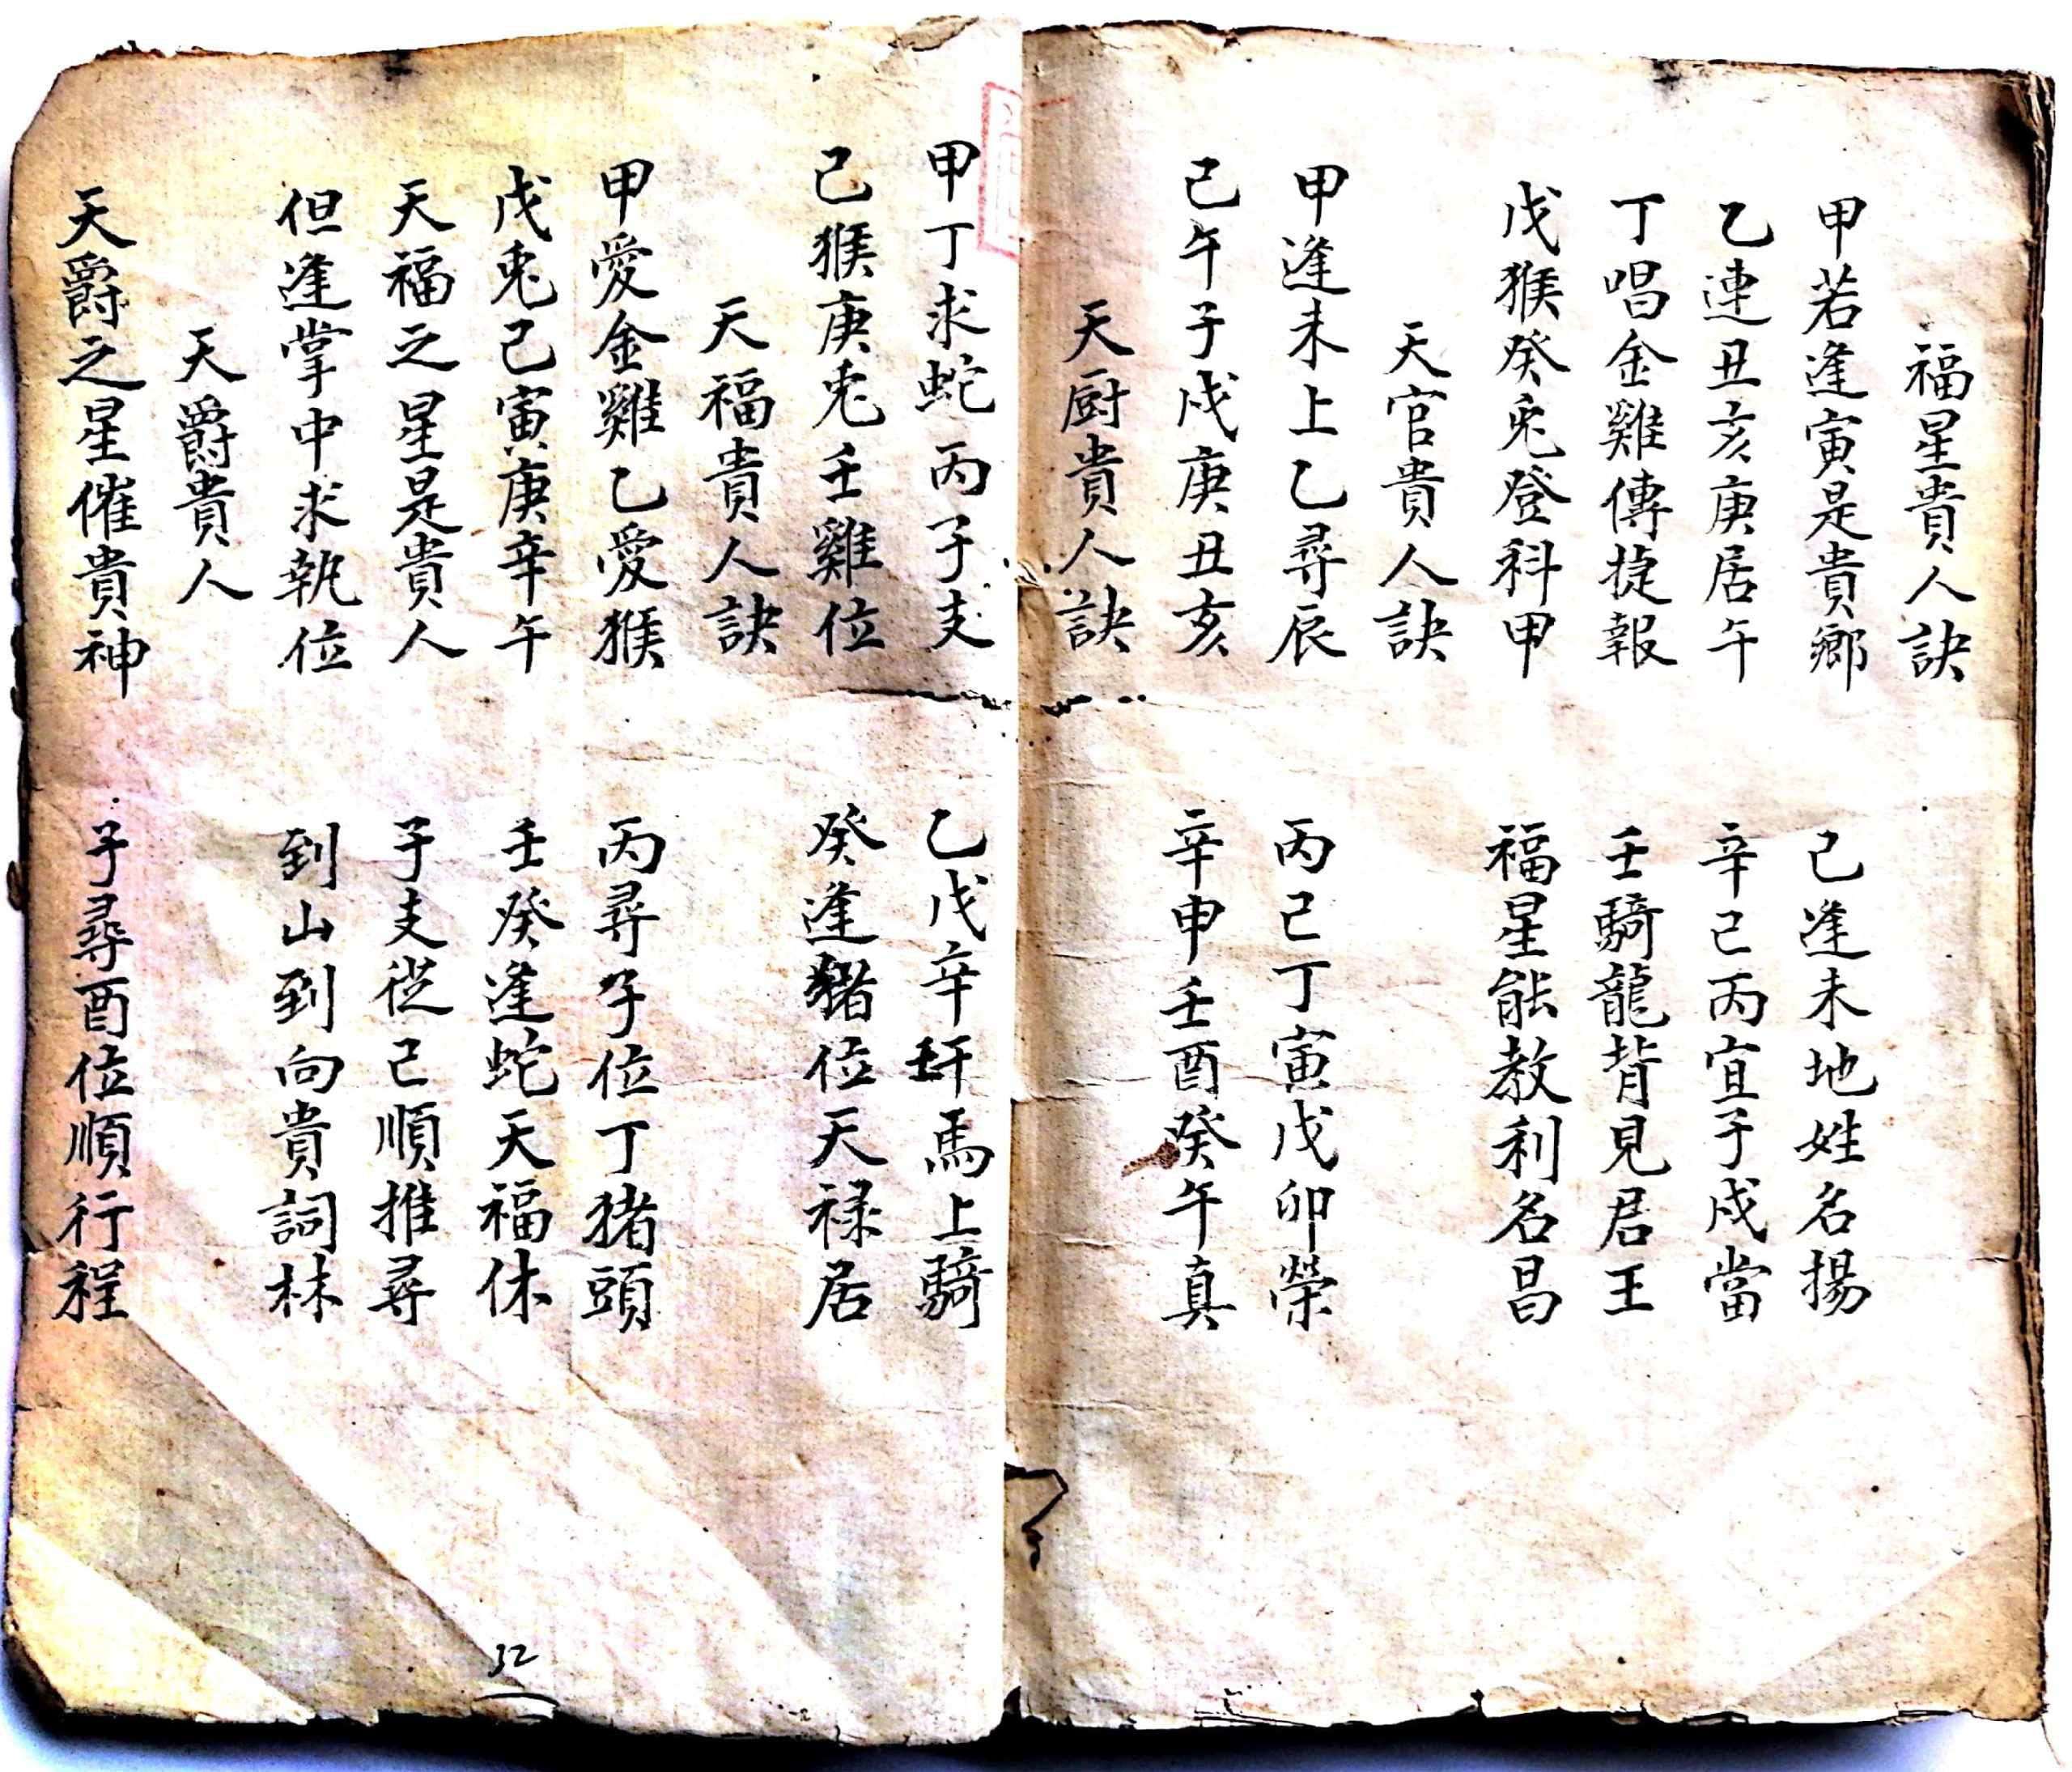 福星貴人訣
甲若逢寅是貴鄉 己逢未地姓名揚
乙連丑亥庚居午 辛己丙宜子戌當
丁唱金雞傳捷報 壬騎龍背見君王
戊猴癸兎登科甲 福星能教利名昌
天官貴人訣
甲逢未上乙尋辰 丙己丁寅戊卯榮
己午子戌庚丑亥 辛申壬酉癸午真
天厨貴人訣
甲丁求蛇丙子支 乙戊辛 馬上騎
己猴庚兎壬雞位 癸逢豬位天禄居
天福貴人訣
甲愛金雞乙愛猴 丙尋子位丁猪頭
戊兎己寅庚辛午 壬癸逢蛇天福休
天福之星是貴人 子支從己順推尋
但逢掌中求執位 到山到向貴詞林
天爵貴人
天爵之星催貴神 子尋酉位順行程
32